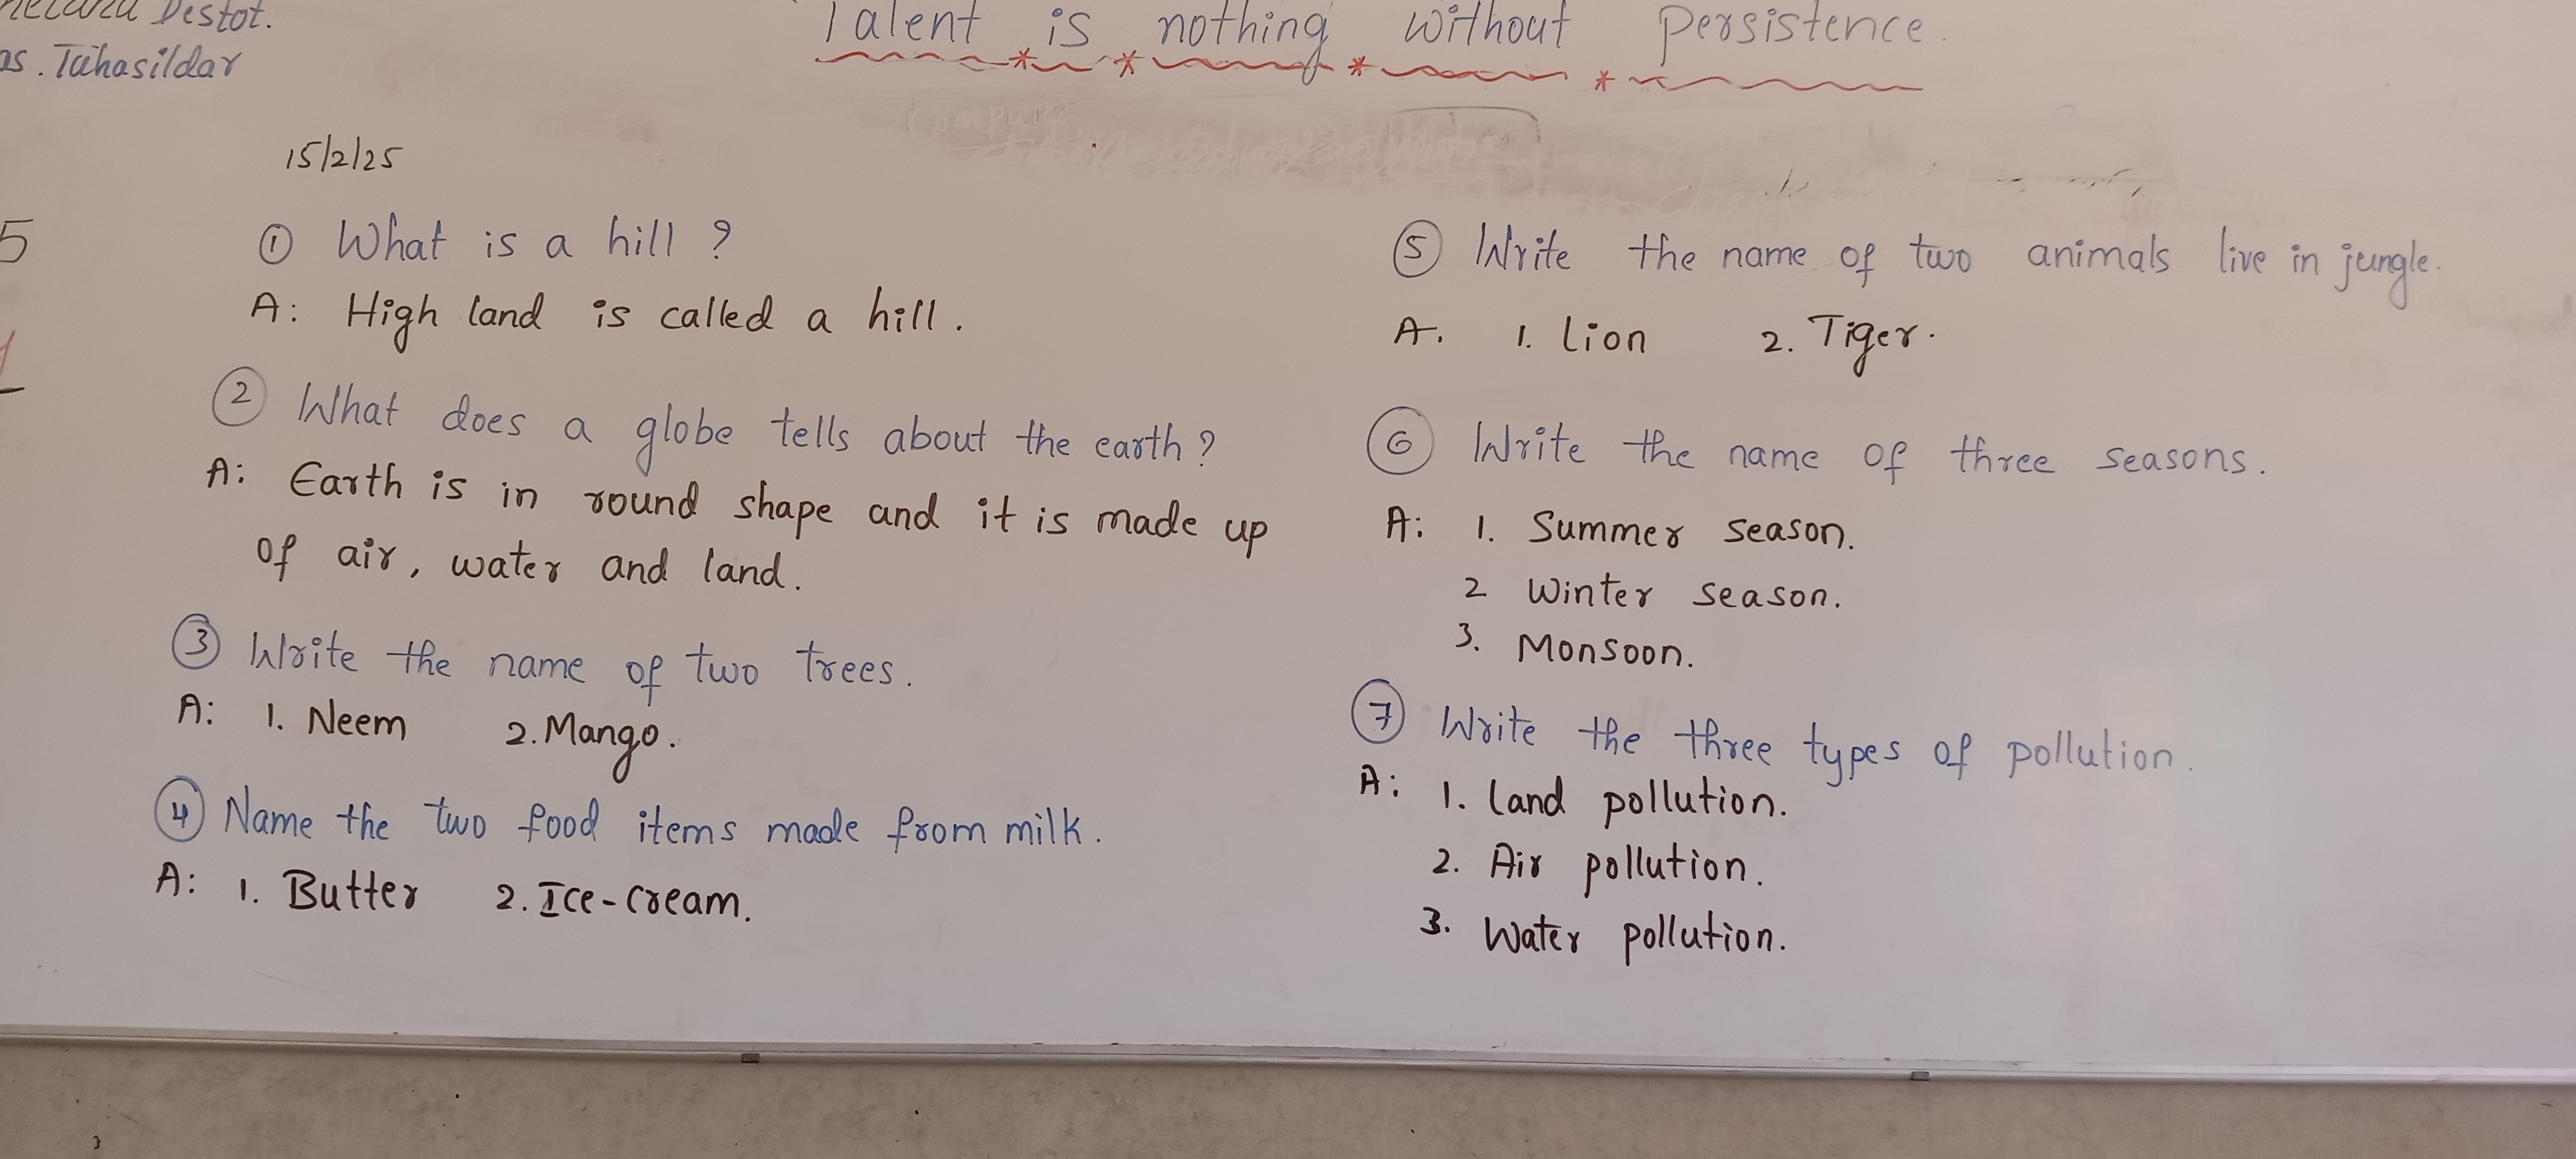 Destot.
Talent is nothing without persistence.
Tahasildar
15/2/25
5
① What is a hill ?
A: High land is called a hill.
② What does a globe tells about the earth?
A: Earth is in round shape and it is made up
of air, water and land.
③ Write the name of two trees.
A: 1. Neem 2. Mango.
④ Name the two food items made from milk.
A: 1. Butter 2. Ice-cream.
⑤ Write the name of two animals live in jungle.
A. 1. Lion 2. Tiger.
⑥ Write the name of three seasons.
A: 1. Summer season.
2 Winter season.
3. Monsoon.
⑦ Write the three types of pollution.
A: 1. Land pollution.
2. Air pollution.
3. Water pollution.